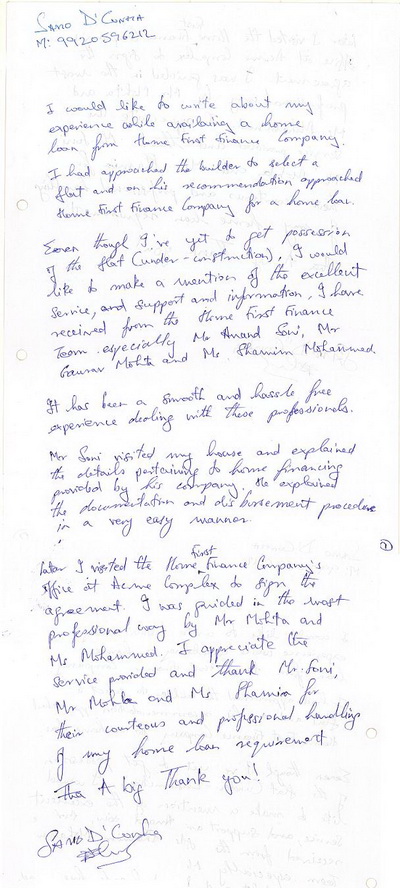 SAVIO D'CUNHA
M: 9920596212
I would like to write about my
experience while availaing a home
loan from Home First Finance Company.
I had approached the builder to select a
flat and on his recommendation approached
Home First Finance Company for a home loan.
Even though I've yet to get possession
of the flat (under-construction), I would
like to make a mention of the excellent
service, and support and information, I have
received from the Home First Finance
Team especially Mr Anand Soni, Mr
Gaurav Mehta and Ms. Shamim Mohammed.
It has been a smooth and hassle free
experience dealing with these professionals.
Mr Soni visited my house and explained
the details pertaining to home financing
provided by his company. He explained
the documentation and disbursement procedure
in a very easy manner.
Later I visited the Home First Finance Company's
office at Acme Complex to sign the
agreement. I was guided in the most
professional way by Mr Mehta and
Ms Mohammed. I appreciate the
service provided and thank Mr. Soni,
Mr Mehta and Ms Shamim for
their courteous and professional handling
of my home loan requirement
A big Thank you!
SAVIO D'Cunha